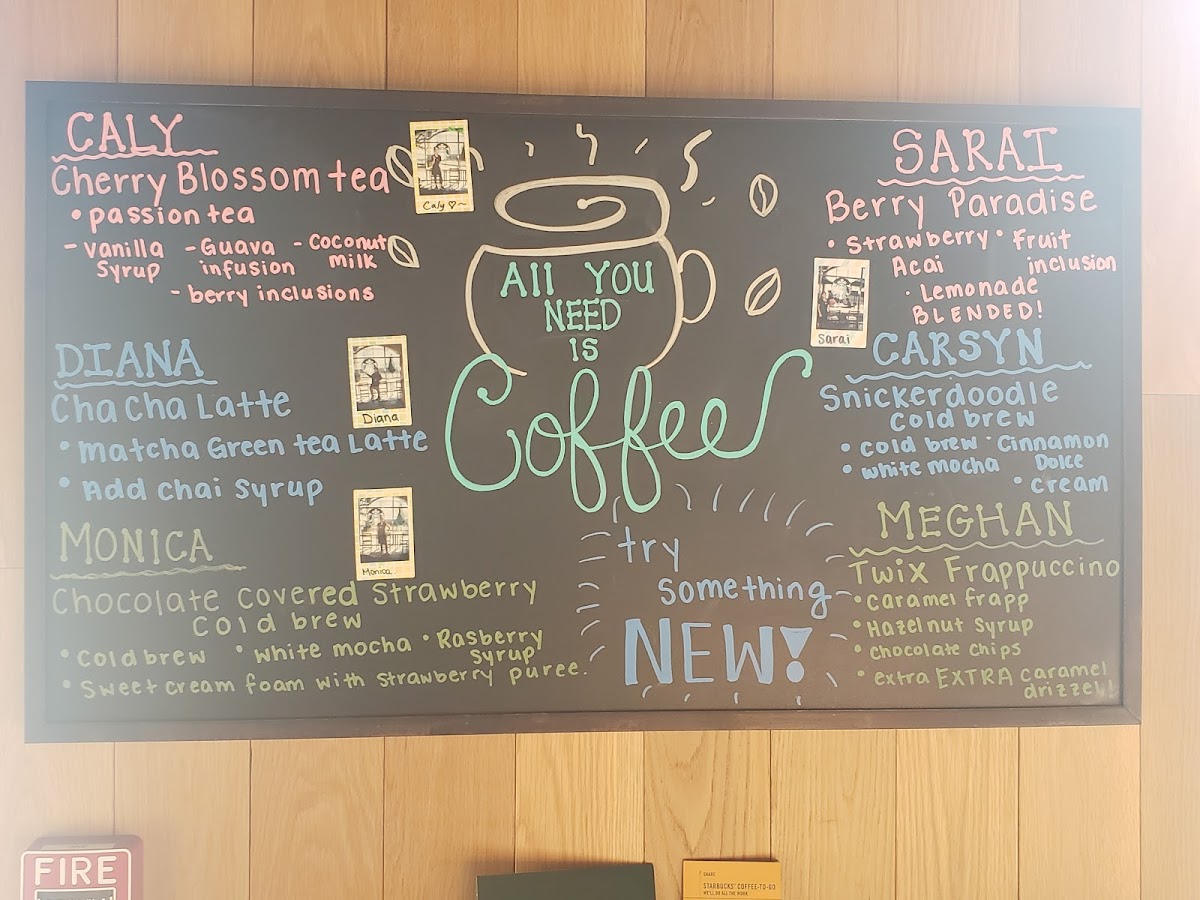 CALY
Cherry Blossom tea
• passion tea
- vanilla syrup
- Guava infusion
- coconut milk
- berry inclusions
Caly ♡~
DIANA
Cha Cha Latte
• Matcha Green tea Latte
• Add chai syrup
Diana
MONICA
Chocolate covered strawberry
cold brew
• cold brew
• white mocha
• Rasberry syrup
• Sweet cream foam with strawberry puree.
Monica
All YOU
NEED
IS
Coffee
try
something
NEW!
SARAI
Berry Paradise
• Strawberry Acai
• Fruit inclusion
• Lemonade
BLENDED!
Sarai
CARSYN
Snickerdoodle
cold brew
• cold brew
• white mocha
• Cinnamon Dolce
• cream
MEGHAN
Twix Frappuccino
• caramel frapp
• Hazelnut syrup
• chocolate chips
• extra EXTRA caramel
drizzel!
FIRE
SHARE
STARBUCKS® COFFEE-TO-GO
WE'LL DO ALL THE WORK